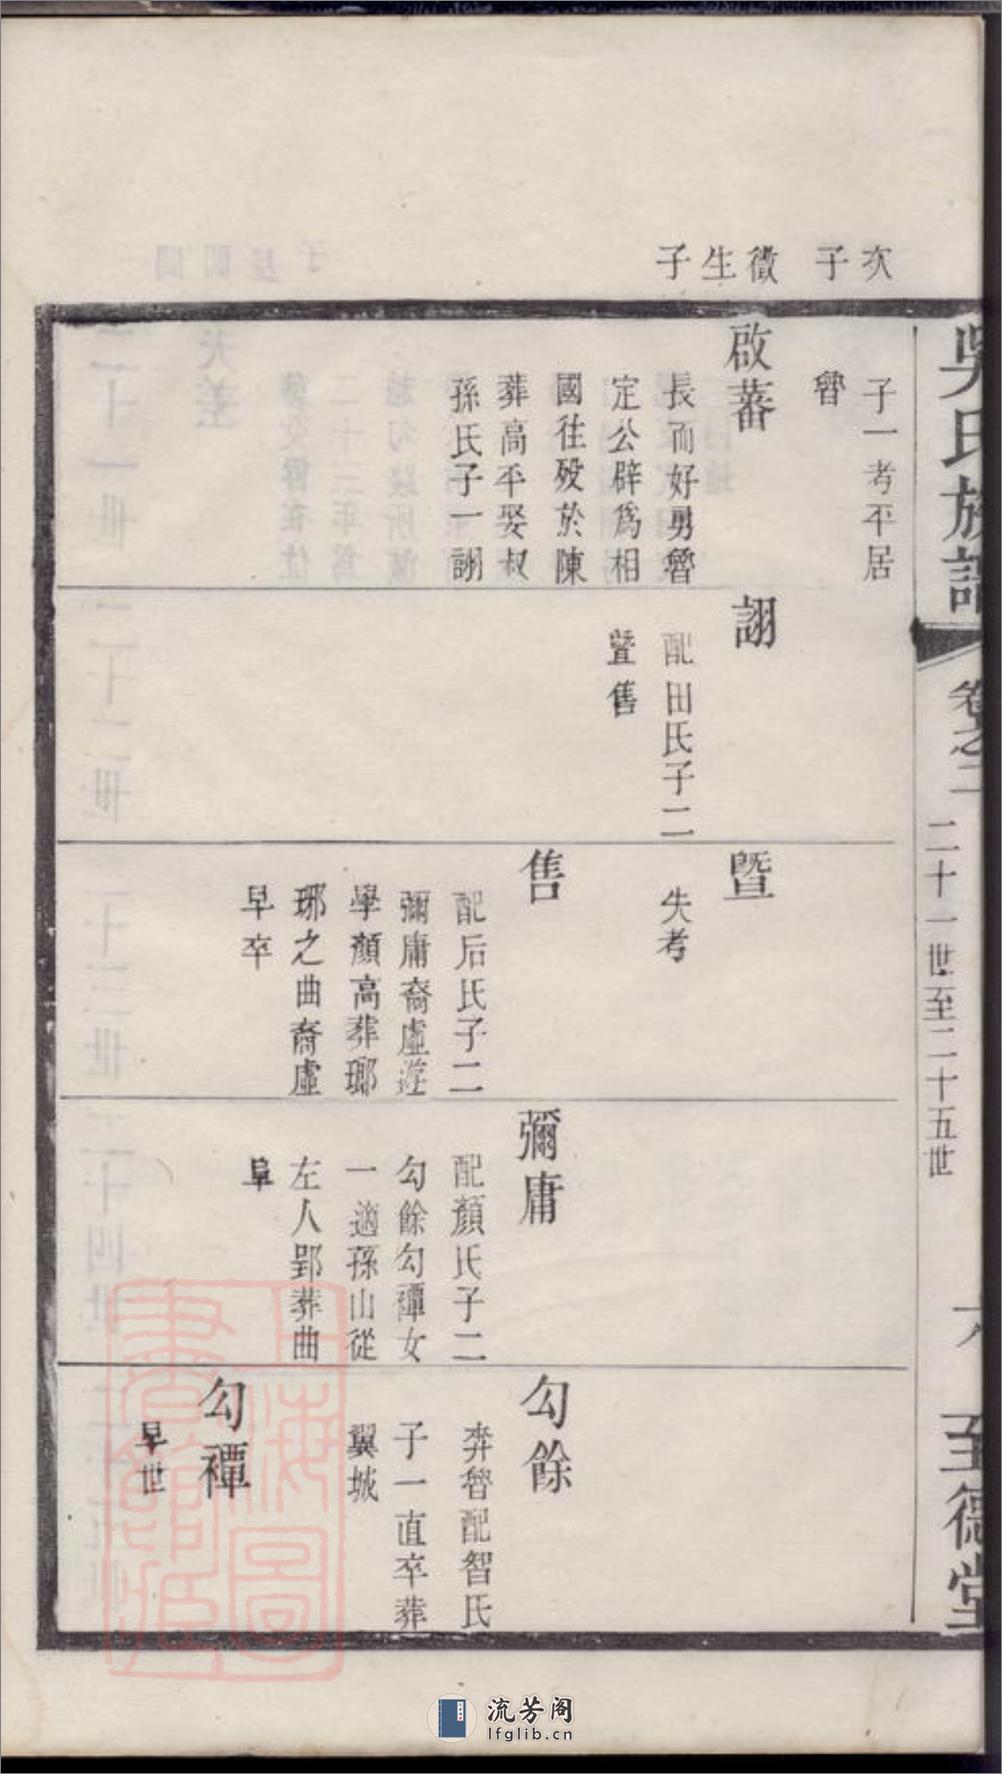 吳氏族譜
卷之二
二十一世至二十五世
六
至德堂
次子
徵生子
子一考平居
魯
啟蕃
長而好勇魯
定公辟爲相
國往歿於陳
葬高平娶叔
孫氏子一詡
詡
配田氏子二
暨售
暨
失考
售
配后氏子二
彌庸裔虛遊
學顏高葬瑯
琊之曲裔虛
早卒
彌庸
配顏氏子二
勾餘勾禫女
一適孫山從
左人郢葬曲
阜
勾餘
奔魯配智氏
子一直卒葬
翼城
勾禫
早世
上海圖書館藏
流芳阁
lfglib.cn